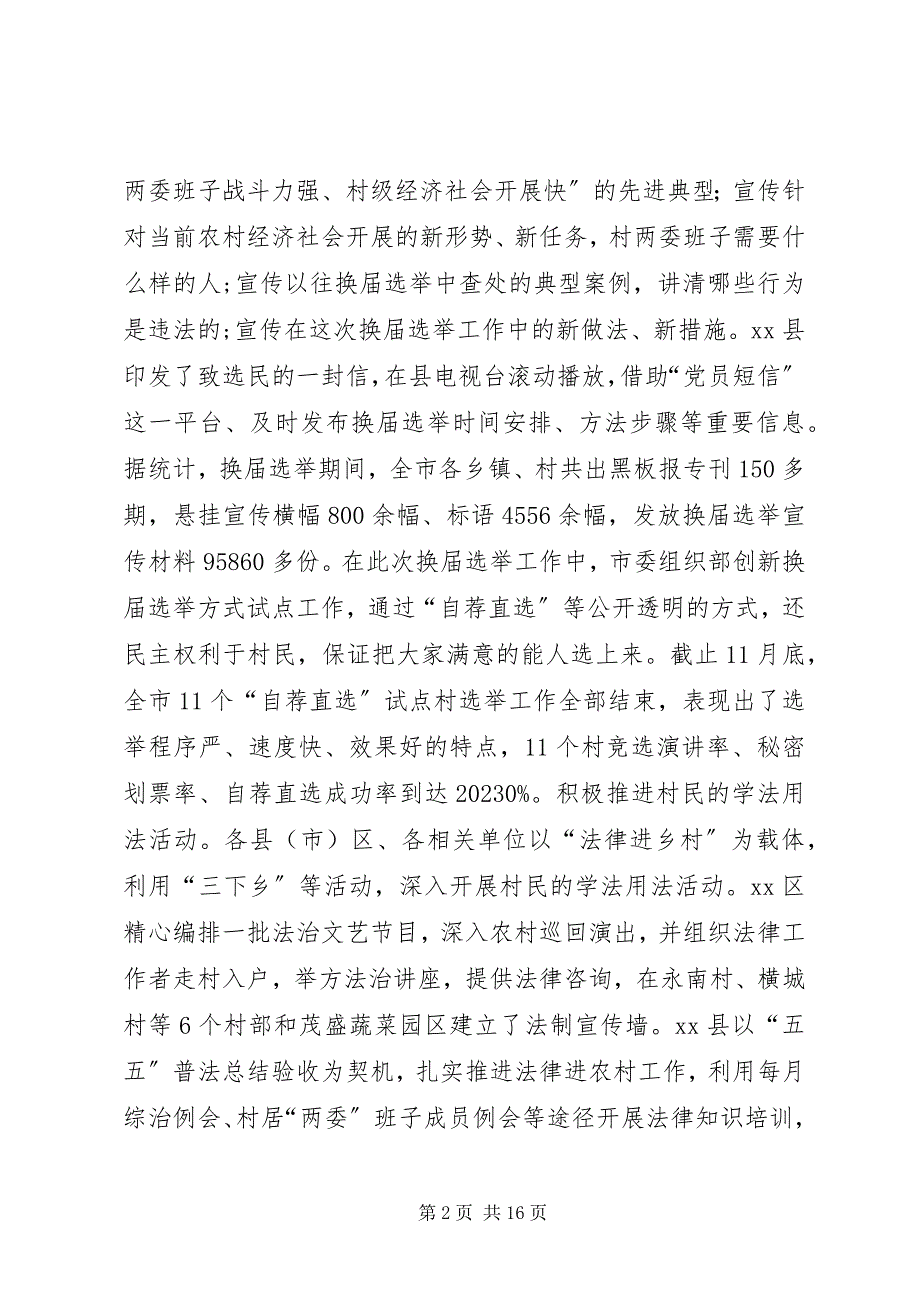 两委班子战斗力强、村级经济社会开展快〞的先进典型；宣传针
对当前农村经济社会开展的新形势、新任务，村两委班子需要什
么样的人;宣传以往换届选举中查处的典型案例，讲清哪些行为
是违法的;宣传在这次换届选举工作中的新做法、新措施。xx 县
印发了致选民的一封信，在县电视台滚动播放，借助“党员短信〞
这一平台、及时发布换届选举时间安排、方法步骤等重要信息。
据统计，换届选举期间，全市各乡镇、村共出黑板报专刊 150 多
期，悬挂宣传横幅 800 余幅、标语 4556 余幅，发放换届选举宣
传材料 95860 多份。在此次换届选举工作中，市委组织部创新换
届选举方式试点工作，通过“自荐直选〞等公开透明的方式，还
民主权利于村民，保证把大家满意的能人选上来。截止 11 月底，
全市 11 个“自荐直选〞试点村选举工作全部结束，表现出了选
举程序严、速度快、效果好的特点，11 个村竞选演讲率、秘密
划票率、自荐直选成功率到达 20230%。积极推进村民的学法用
法活动。各县（市）区、各相关单位以“法律进乡村〞为载体，
利用“三下乡〞等活动，深入开展村民的学法用法活动。xx 区
精心编排一批法治文艺节目，深入农村巡回演出，并组织法律工
作者走村入户，举方法治讲座，提供法律咨询，在永南村、横城
村等 6 个村部和茂盛蔬菜园区建立了法制宣传墙。xx 县以“五
五〞普法总结验收为契机，扎实推进法律进农村工作，利用每月
综治例会、村居“两委〞班子成员例会等途径开展法律知识培训，
第 2 页 共 16 页